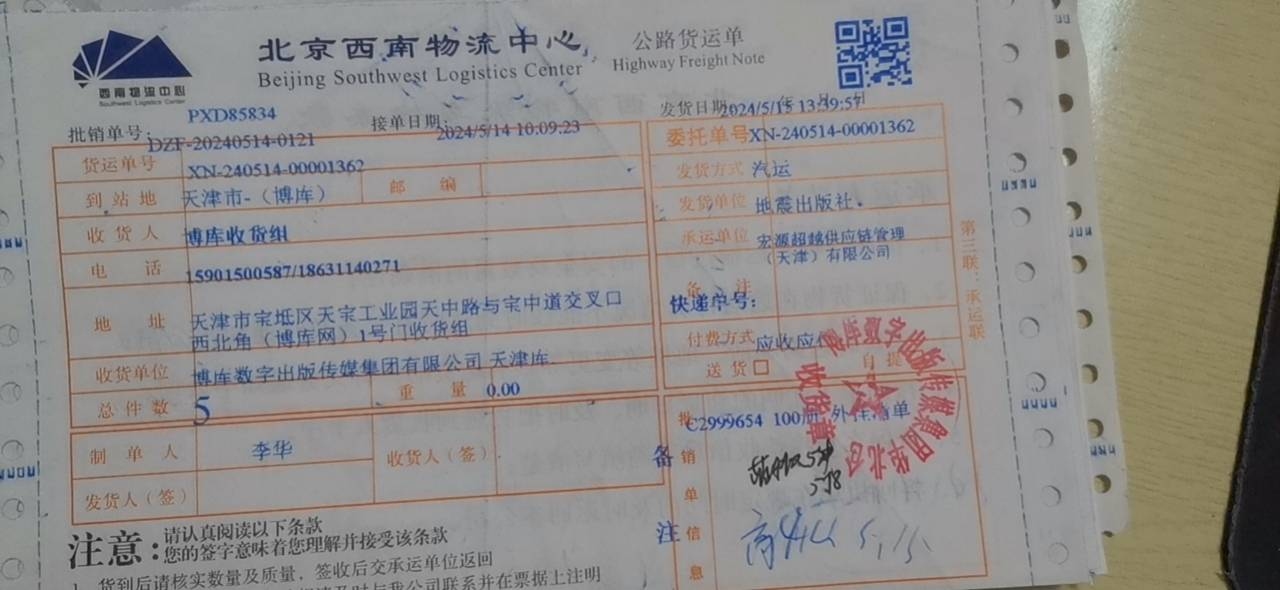 北京西南物流中心
Beijing Southwest Logistics Center
公路货运单
Highway Freight Note
西南物流中心
Southwest Logistics Center
PXD85834
批销单号：DZF-20240514-0121
接单日期：2024/5/14 10:09:23
发货日期 2024/5/15 13:39:57
货运单号 XN-240514-00001362
委托单号 XN-240514-00001362
到站地 天津市-（博库） 邮编
发货方式 汽运
收货人 博库收货组
发货单位 地震出版社.
电话 15901500587/18631140271
承运单位 宏源超越供应链管理
（天津）有限公司
地址 天津市宝坻区天宝工业园天中路与宝中道交叉口
西北角（博库网）1号门收货组
备注
快递单号：
收货单位 博库数字出版传媒集团有限公司 天津库
付费方式 应收应付
总件数 5 重量 0.00
送货□ 自提
制单人 李华 收货人（签）
发货人（签）
备注
批销单信息
C2999654 100册
清单
收货章
第三联：承运联
注意：
请认真阅读以下条款
您的签字意味着您理解并接受该条款
1、货到后请核实数量及质量，签收后交承运单位返回
系并在票据上注明